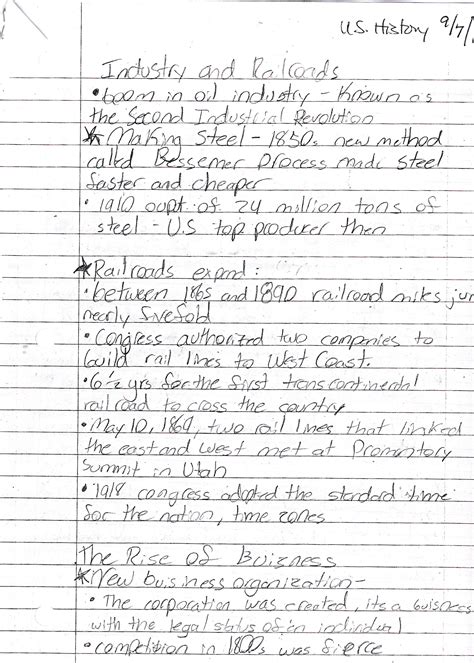 U.S. History 9/7/
Industry and Railroads
• boom in oil industry - Known as
the Second Industrial Revolution
★ Making Steel - 1850s new method
called Bessemer Process made steel
faster and cheaper
• 1910 oupt. of 24 million tons of
steel - U.S top producer then
★Railroads expand:
• between 1865 and 1890 railroad miles jum
nearly fivefold
• Congress authorized two companies to
build rail lines to West Coast.
• 6½ yrs for the first transcontinental
railroad to cross the country
• May 10, 1869, two rail lines that linked
the east and west met at Promontory
Summit in Utah
• 1918 congress adopted the standard time
for the nation, time zones
The Rise of Buizness
★New business organization-
• The corporation was created, its a buisness
with the legal status of an individual
• competition in 1800s was fierce